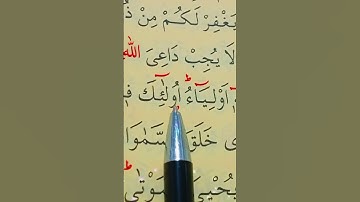 يَغْفِرْ لَكُمْ مِنْ
لَا يُجِبْ دَاعِيَ اللّٰهِ
اَوْلِيَآءُ ؕ اُولٰٓئِكَ
خَلَقَ السَّمٰوَا
يُحْيِۦ الْمَوْتٰى ؕ